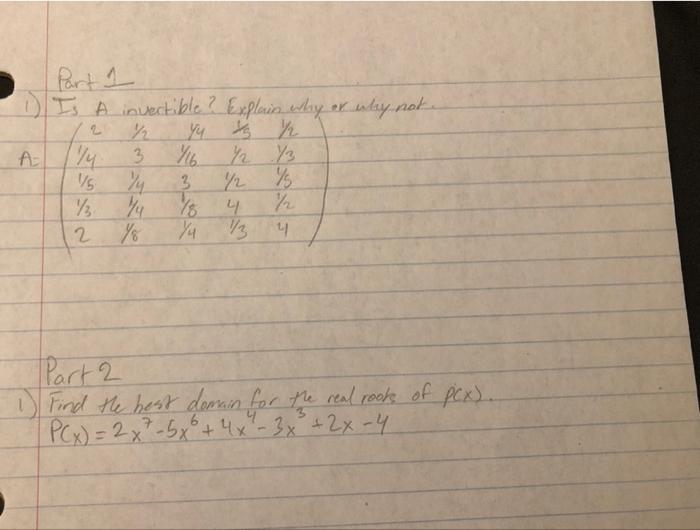 Part 1
1) Is A invertible? Explain why or why not.
2 1/2 1/4 1/5 1/2
A= 1/4 3 1/16 1/2 1/3
1/5 1/4 3 1/2 1/5
1/3 1/4 1/8 4 1/2
2 1/8 1/4 1/3 4
Part 2
1) Find the best domain for the real roots of p(x).
P(x) = 2x⁷-5x⁶+4x⁴-3x³+2x-4